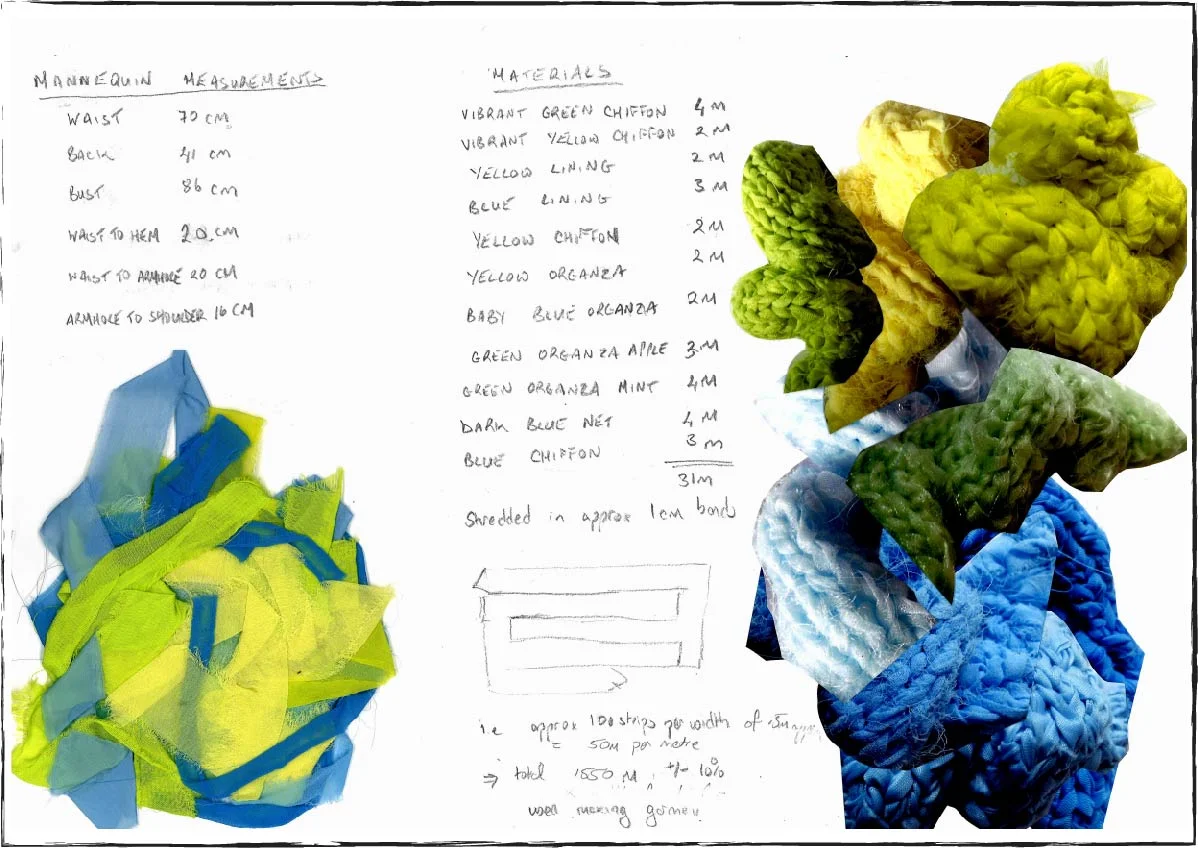 MANNEQUIN MEASUREMENTS
WAIST 70 CM
BACK 41 CM
BUST 86 CM
WAIST TO HEM 20 CM
WAIST TO ARMHOLE 20 CM
ARMHOLE TO SHOULDER 16 CM
MATERIALS
VIBRANT GREEN CHIFFON 4 M
VIBRANT YELLOW CHIFFON 2 M
YELLOW LINING 2 M
BLUE LINING 3 M
YELLOW CHIFFON 2 M
YELLOW ORGANZA 2 M
BABY BLUE ORGANZA 2 M
GREEN ORGANZA APPLE 3 M
GREEN ORGANZA MINT 4 M
DARK BLUE NET 4 M
BLUE CHIFFON 3 M
31M
Shredded in approx 1cm bands
i.e approx 100 strips per width of
= 50M per metre
⇒ total 1550 M +/- 10%
used making